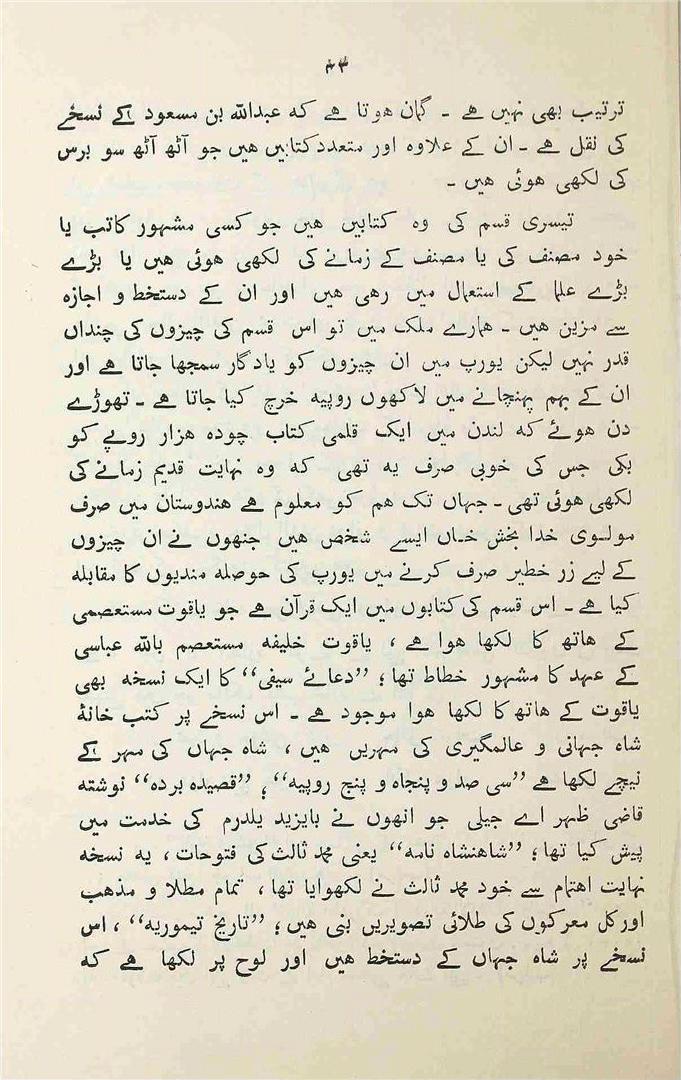 ۸۳
ترتیب بھی نہیں ہے ۔ گمان ہوتا ہے کہ عبداللہ بن مسعود کے نسخے
کی نقل ہے ۔ ان کے علاوہ اور متعدد کتابیں ہیں جو آٹھ آٹھ سو برس
کی لکھی ہوئی ہیں ۔
تیسری قسم کی وہ کتابیں ہیں جو کسی مشہور کاتب یا
خود مصنف کی یا مصنف کے زمانے کی لکھی ہوئی ہیں یا بڑے
بڑے علما کے استعمال میں رہی ہیں اور ان کے دستخط و اجازہ
سے مزین ہیں ۔ ہمارے ملک میں تو اس قسم کی چیزوں کی چنداں
قدر نہیں لیکن یورپ میں ان چیزوں کو یادگار سمجھا جاتا ہے اور
ان کے بہم پہنچانے میں لاکھوں روپیہ خرچ کیا جاتا ہے ۔ تھوڑے
دن ہوئے کہ لندن میں ایک قلمی کتاب چودہ ہزار روپے کو
بکی جس کی خوبی صرف یہ تھی کہ وہ نہایت قدیم زمانے کی
لکھی ہوئی تھی ۔ جہاں تک ہم کو معلوم ہے ہندوستان میں صرف
مولوی خدا بخش خاں ایسے شخص ہیں جنھوں نے ان چیزوں
کے لیے زر خطیر صرف کرنے میں یورپ کی حوصلہ مندیوں کا مقابلہ
کیا ہے ۔ اس قسم کی کتابوں میں ایک قرآن ہے جو یاقوت مستعصمی
کے ہاتھ کا لکھا ہوا ہے ، یاقوت خلیفہ مستعصم باللہ عباسی
کے عہد کا مشہور خطاط تھا ؛ ”دعائے سیفی“ کا ایک نسخہ بھی
یاقوت کے ہاتھ کا لکھا ہوا موجود ہے ۔ اس نسخے پر کتب خانۂ
شاہ جہانی و عالمگیری کی مہریں ہیں ، شاہ جہاں کی مہر کے
نیچے لکھا ہے ”سی صد و پنجاہ و پنج روپیہ“ ؛ ”قصیدہ بردہ“ نوشتہ
قاضی ظہر اے جیلی جو انھوں نے بایزید یلدرم کی خدمت میں
پیش کیا تھا ؛ ”شاہنشاہ نامہ“ یعنی محمد ثالث کی فتوحات ، یہ نسخہ
نہایت اہتمام سے خود محمد ثالث نے لکھوایا تھا ، تمام مطلا و مذہب
اور کل معرکوں کی طلائی تصویریں بنی ہیں ؛ ”تاریخ تیموریہ“ ، اس
نسخے پر شاہ جہاں کے دستخط ہیں اور لوح پر لکھا ہے کہ